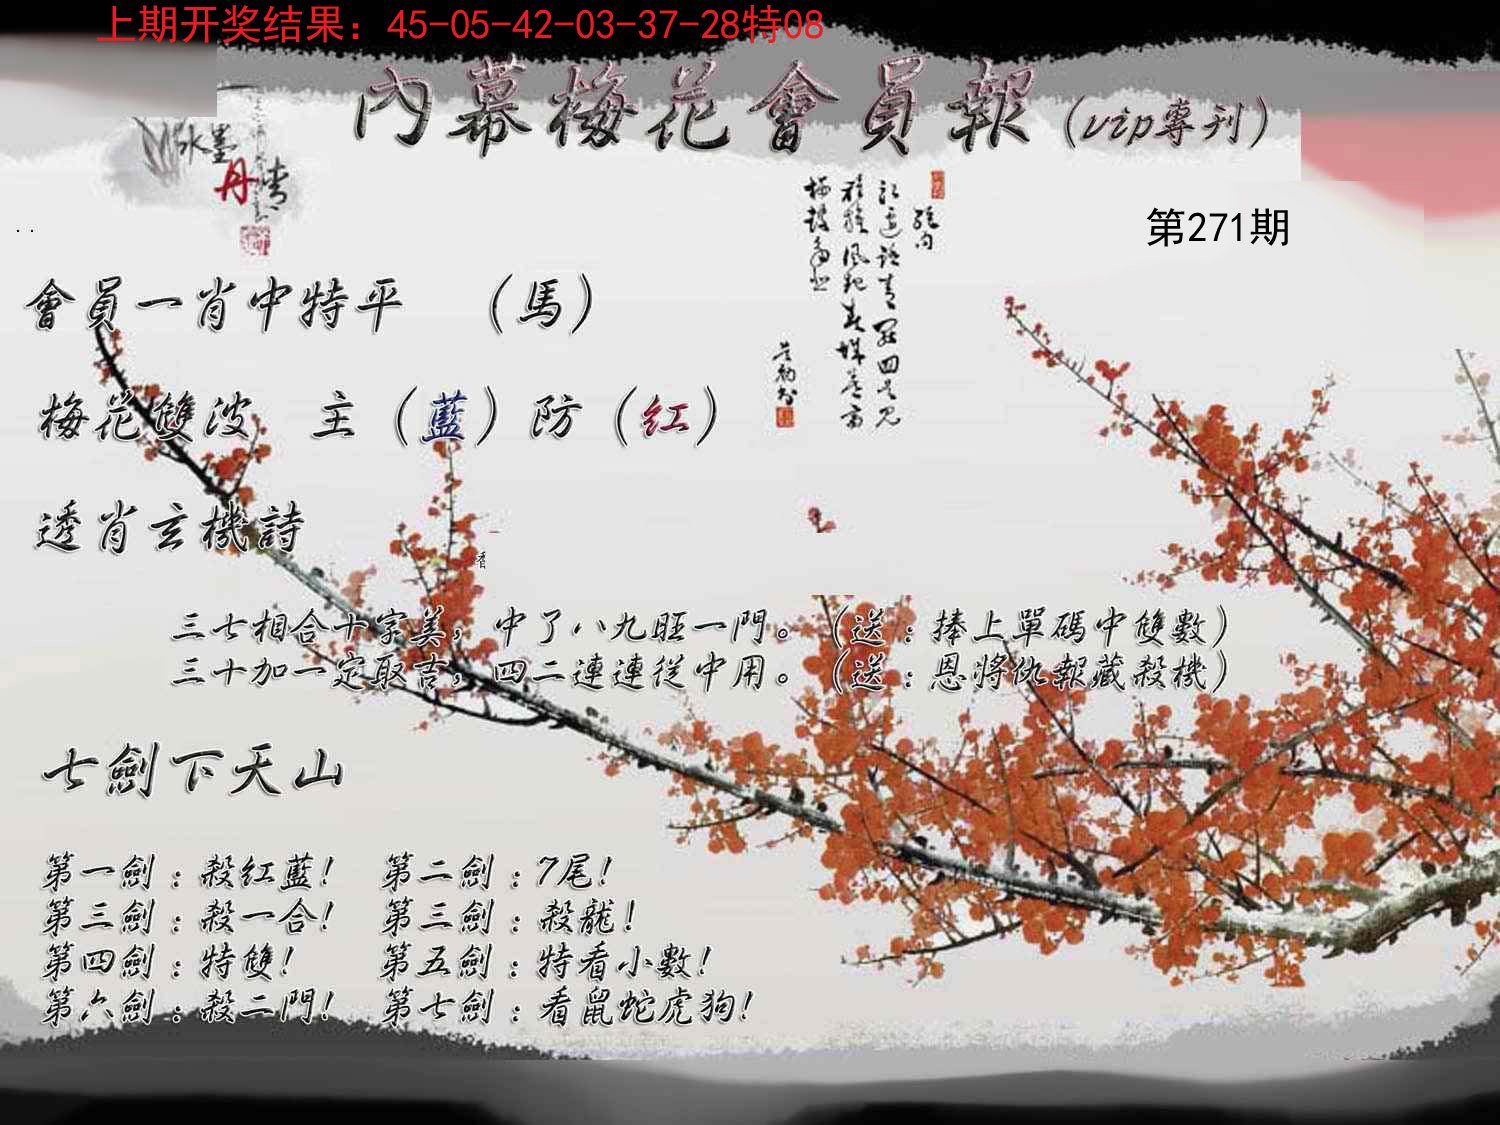 上期开奖结果：45-05-42-03-37-28特08
內幕梅花會員報（vip專刊）
水墨
丹青
第271期
會員一肖中特平　（馬）
梅花雙波　主（藍）防（紅）
透肖玄機詩
三七相合十宗美，中了八九旺一門。（送：捧上單碼中雙數）
三十加一定取吉，四二連連從中用。（送：恩將仇報藏殺機）
七劍下天山
第一劍：殺紅藍！　第二劍：7尾！
第三劍：殺一合！　第三劍：殺龍！
第四劍：特雙！　第五劍：特看小數！
第六劍：殺二門！　第七劍：看鼠蛇虎狗！